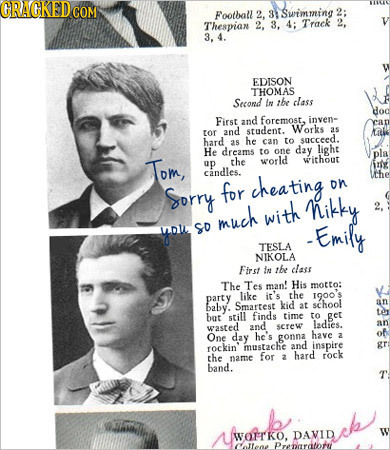 CRACKED.COM
Football 2, 3; Swimming 2;
Thespian 2, 3, 4; Track 2,
3, 4.
EDISON
THOMAS
Second in the class
First and foremost, inven-
tor and student. Works as
hard as he can to succeed.
He dreams to one day light
up the world without
candles.
Tom,
Sorry for cheating on
you so much with Nikky
-Emily
TESLA
NIKOLA
First in the class
The Tes man! His motto:
party like it's the 1900's
baby. Smartest kid at school
but still finds time to get
wasted and screw ladies.
One day he's gonna have a
rockin' mustache and inspire
the name for a hard rock
band.
2,
WOITKO, DAVID
College Preparatory